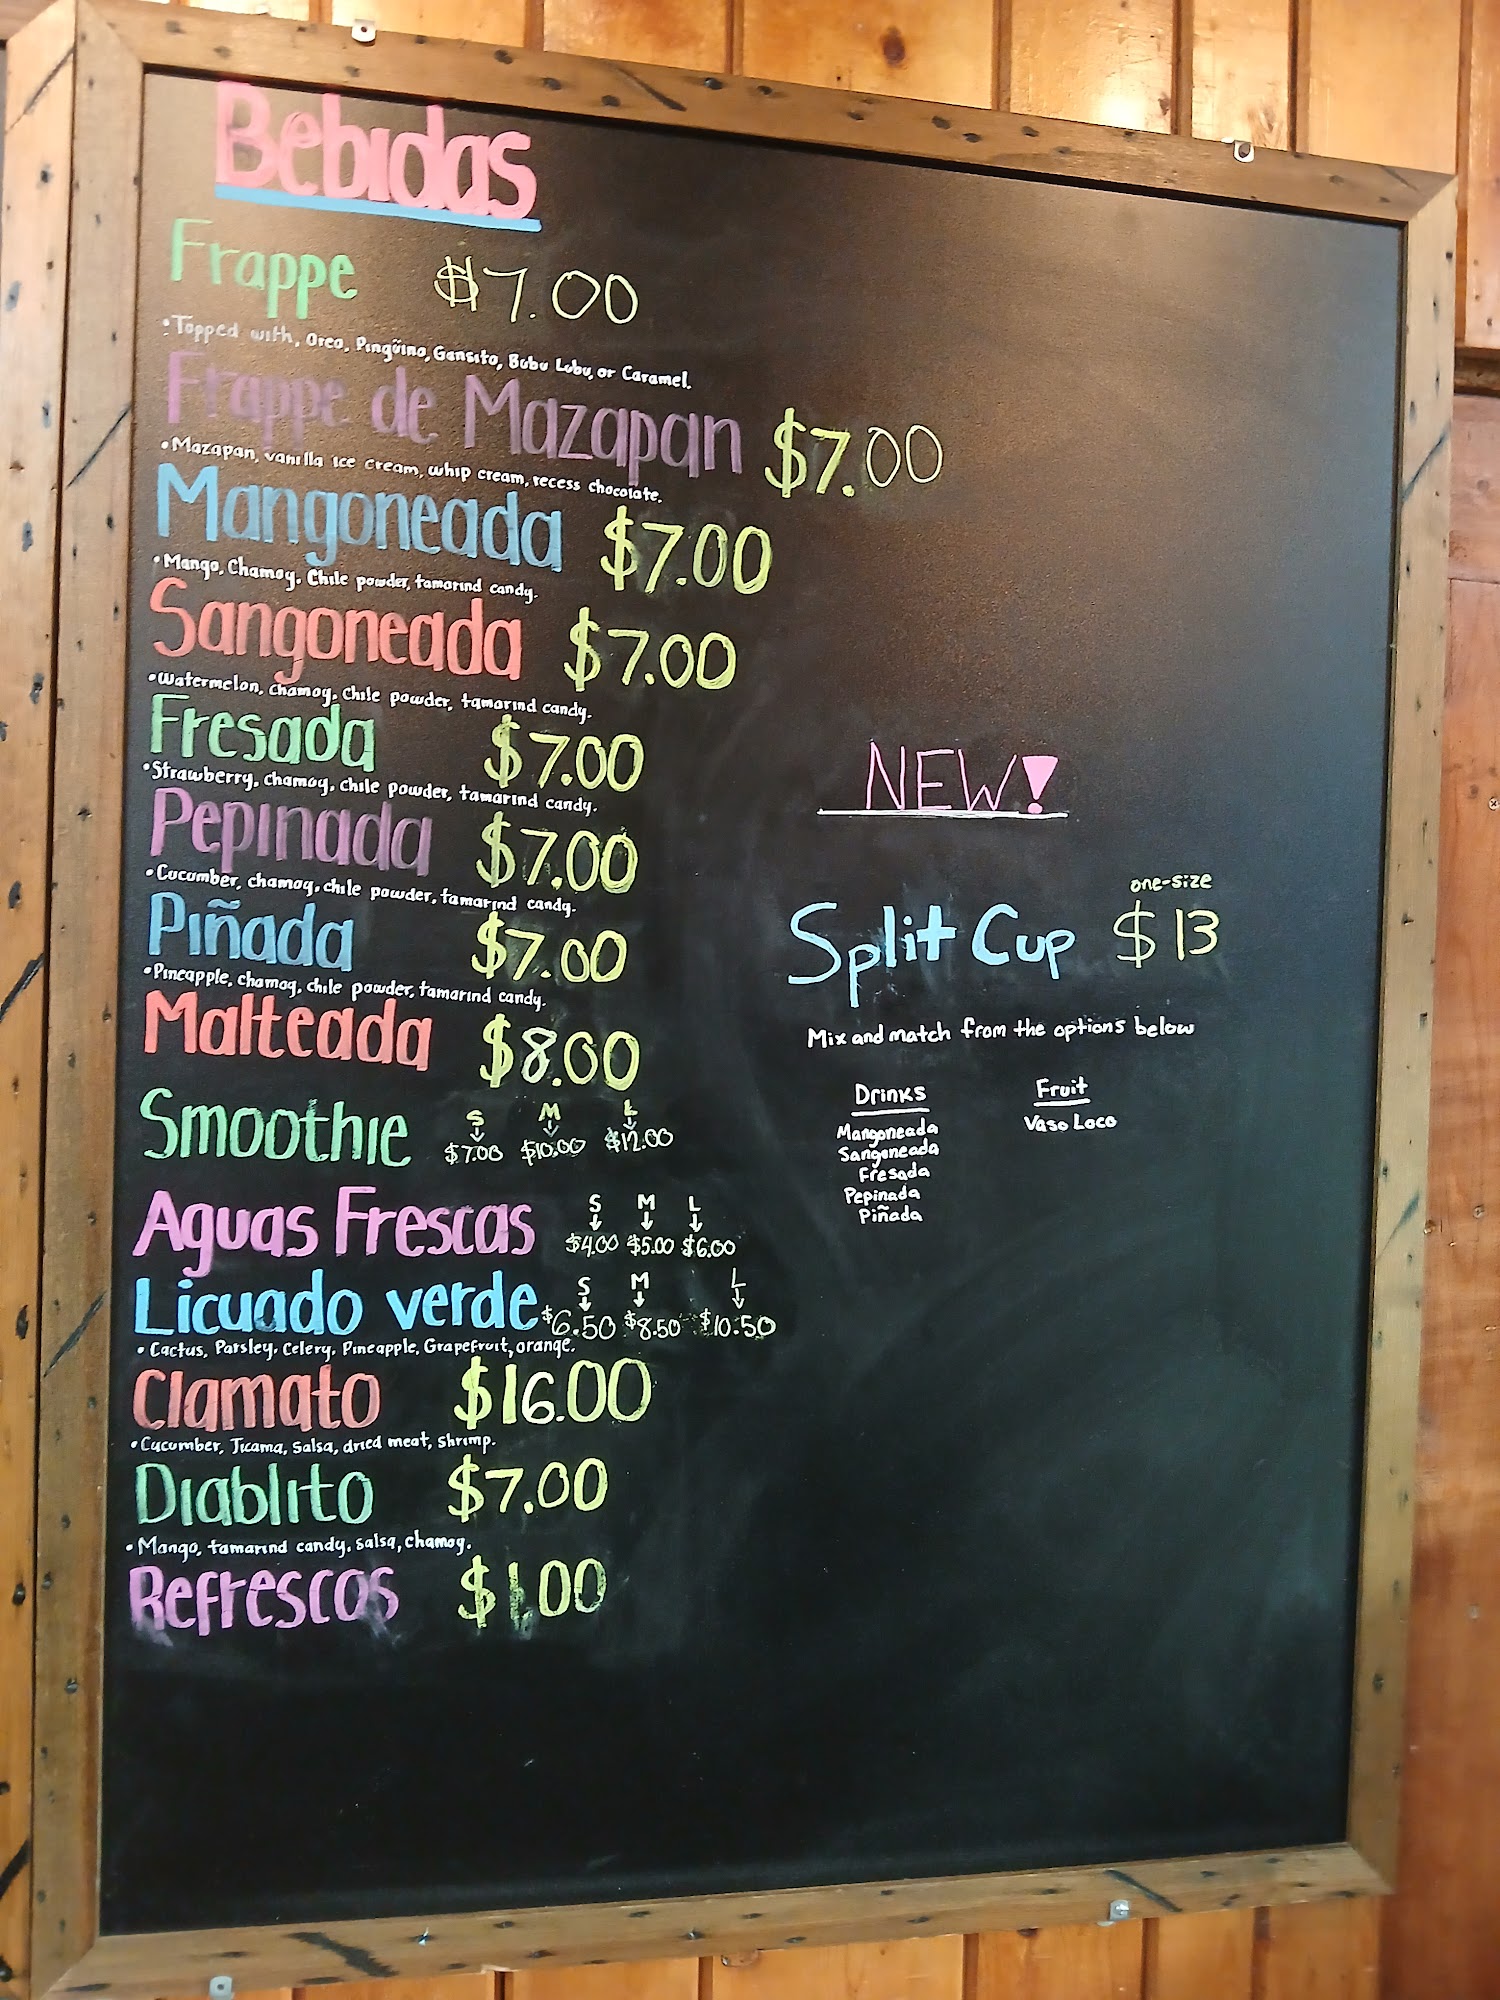 Bebidas
Frappe $7.00
• Topped with, Oreo, Pingüino, Gansito, Bubu Lubu, or Caramel.
Frappe de Mazapan $7.00
• Mazapan, vanilla ice cream, whip cream, recess chocolate.
Mangoneada $7.00
• Mango, Chamoy, Chile powder, tamarind candy.
Sangoneada $7.00
• Watermelon, chamoy, chile powder, tamarind candy.
Fresada $7.00
• Strawberry, chamoy, chile powder, tamarind candy.
Pepinada $7.00
• Cucumber, chamoy, chile powder, tamarind candy.
Piñada $7.00
• Pineapple, chamoy, chile powder, tamarind candy.
Malteada $8.00
S M L
Smoothie $7.00 $10.00 $12.00
S M L
Aguas Frescas $4.00 $5.00 $6.00
S M L
Licuado verde $6.50 $8.50 $10.50
• Cactus, Parsley, Celery, Pineapple, Grapefruit, orange.
Clamato $16.00
• Cucumber, Jicama, salsa, dried meat, shrimp.
Diablito $7.00
• Mango, tamarind candy, salsa, chamoy.
Refrescos $1.00
NEW!
one-size
Split Cup $13
Mix and match from the options below
Drinks
Mangoneada
Sangoneada
Fresada
Pepinada
Piñada
Fruit
Vaso Loco